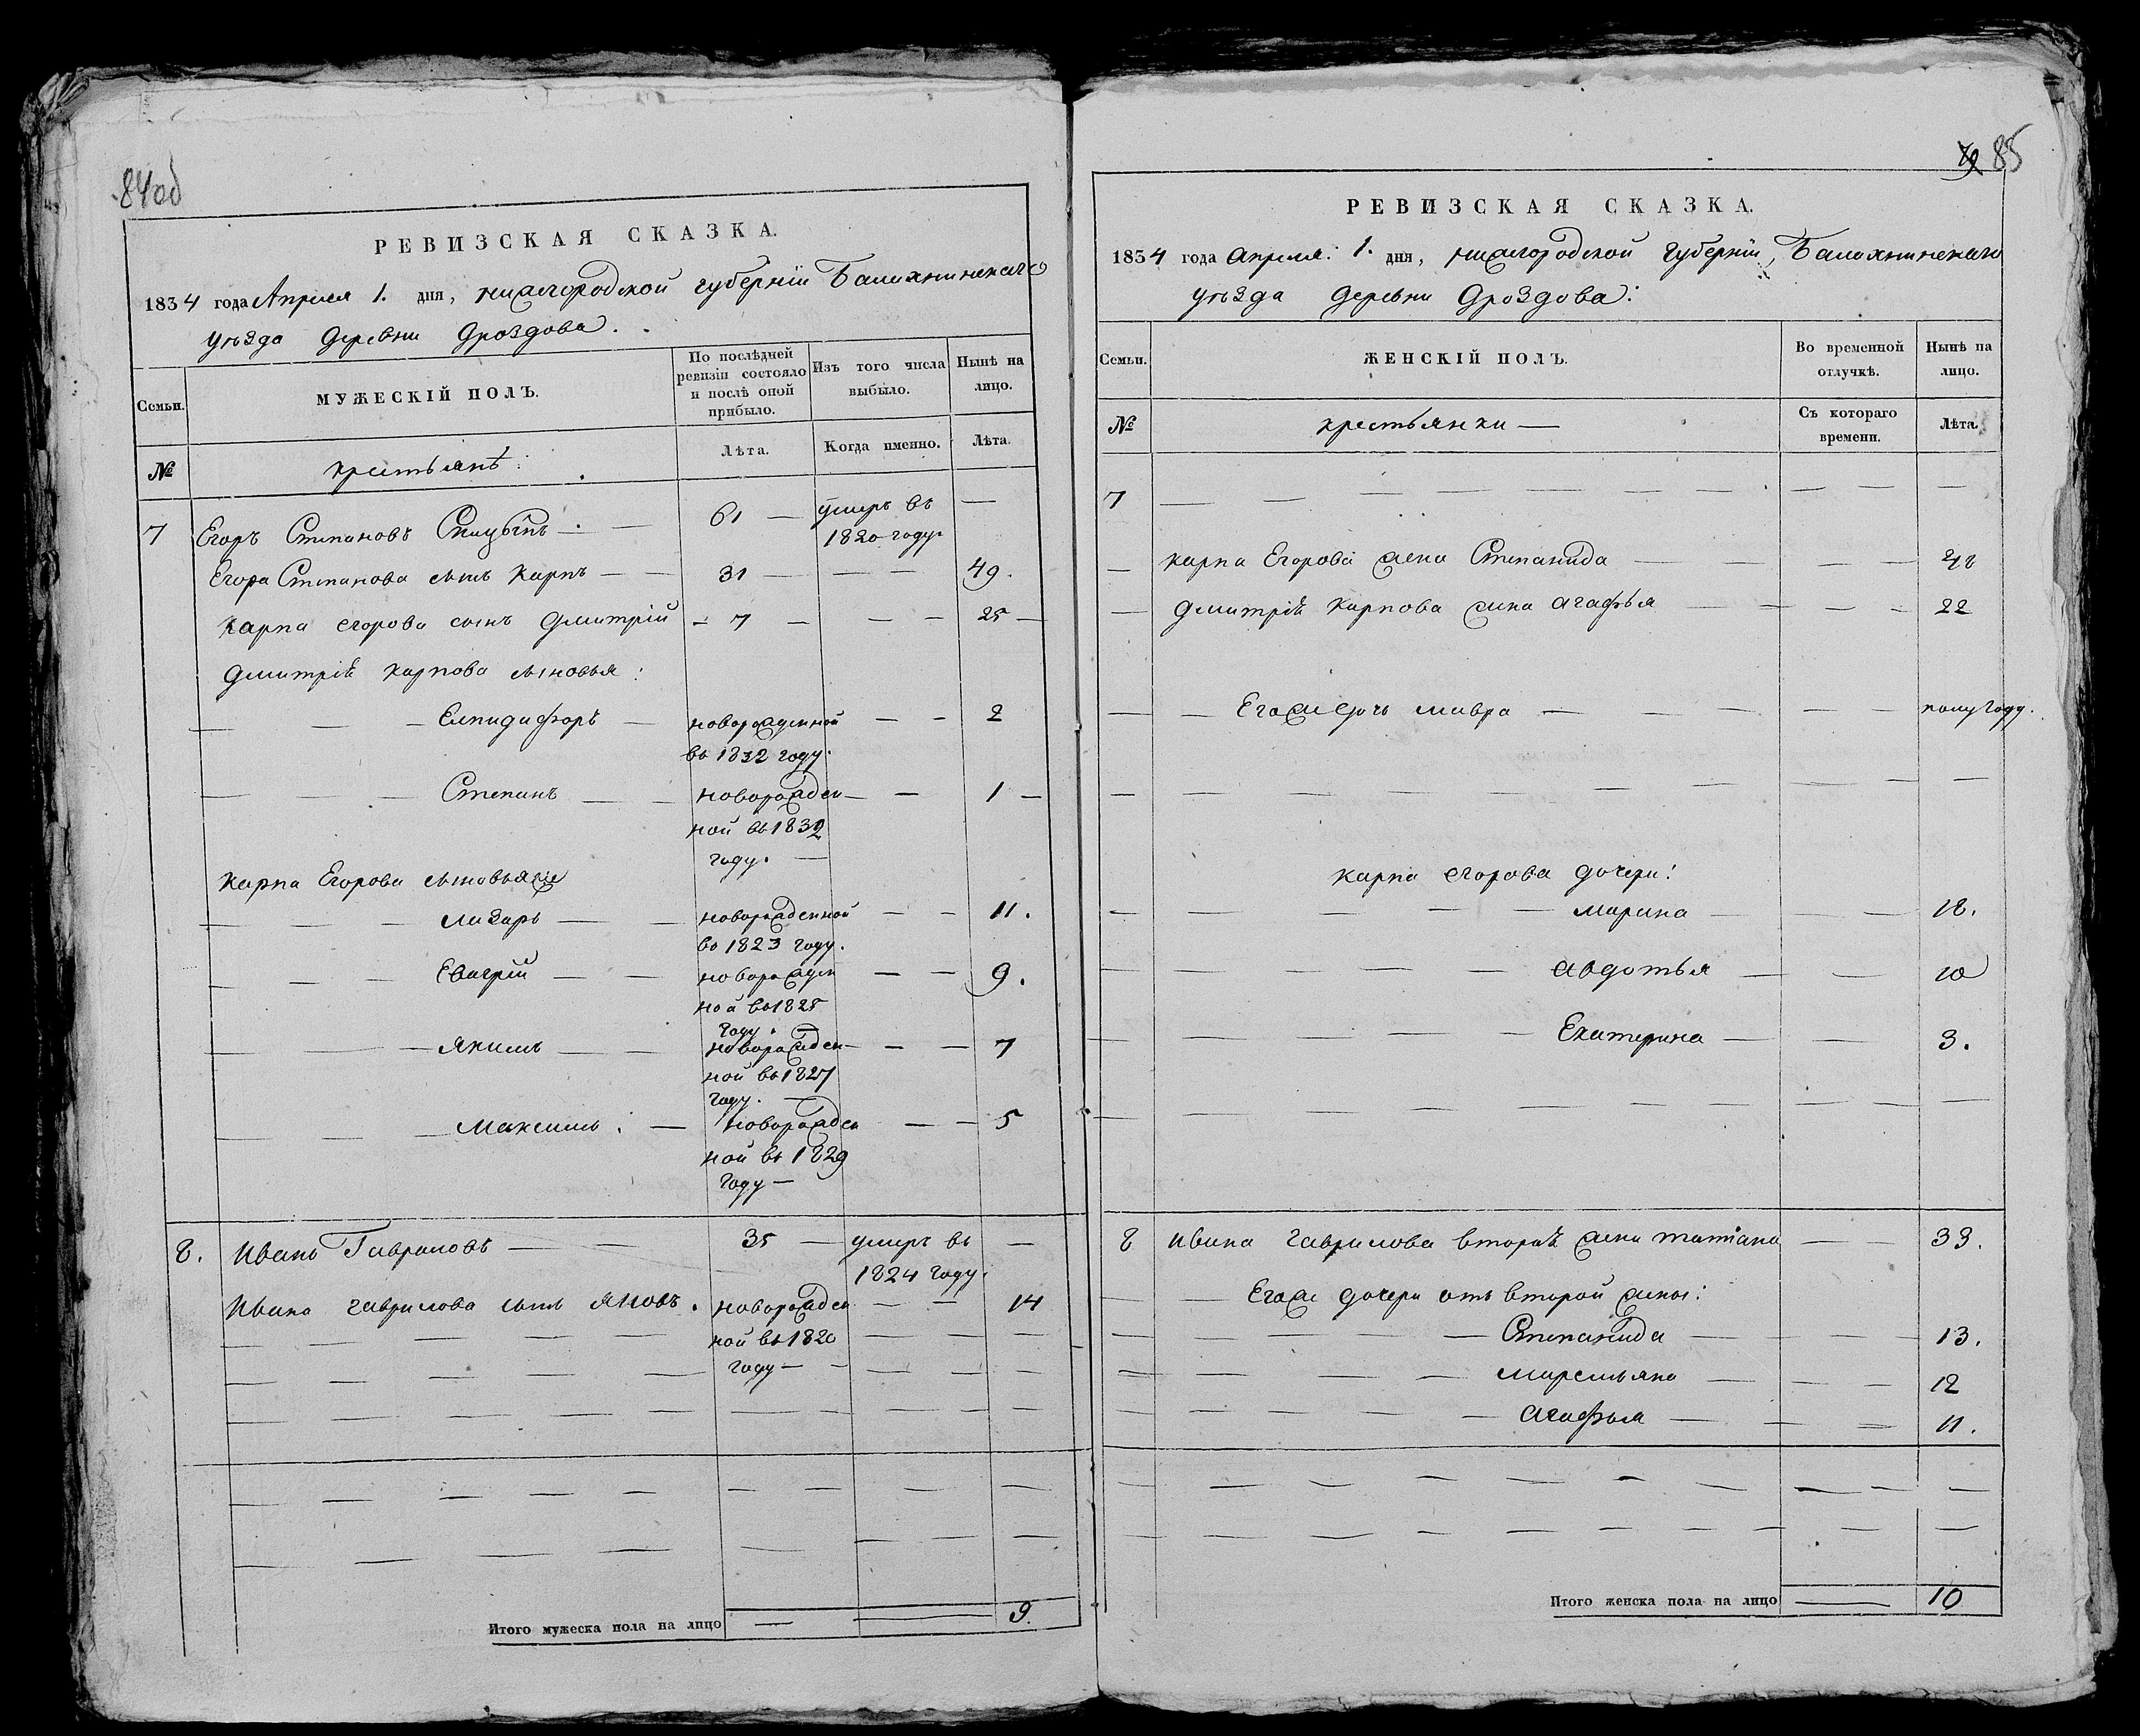 84об
РЕВИЗСКАЯ СКАЗКА.
1834 года Апреля 1. дня, нижегородской губернїи Балахнинскаго
уѣзда деревни Дроздова.
Семьи.
МУЖЕСКІЙ ПОЛЪ.
По послѣдней ревизіи состояло и послѣ оной прибыло.
Изъ того числа выбыло.
Нынѣ на лицо.
№
крестьянѣ:
Лѣта.
Когда именно.
Лѣта.
7 Егоръ Степановъ 61 — умеръ въ —
1820 году.
Егора Степанова сынъ Карпъ — 31 — — — 49.
Карпа егорова сынъ Дмитрій — 7 — — — 25 —
Дмитрія карпова сыновья:
— — — Елпидифоръ — новорожденной — — 2
въ 1832 году.
— — — Степанъ — — новорожден— — 1 —
ной въ 1832
году. —
карпа Егорова сыновьяже
— — — Лазарь — — новорожденной — — 11.
въ 1823 году.
— — — Евагрій — — новорожден — — 9.
ной въ 1825
году. —
— — — Якимъ — — новорожден— — — 7
ной въ 1827
году. —
— — — Максимъ: — новорожден — — 5
ной въ 1829
году —
8. Иванъ Гавриловъ — — 35 — умеръ въ —
1824 году.
Ивана гаврилова сынъ Яковъ. новорожден — — 14
ной въ 1820
году — —
Итого мужеска пола на лицо — — 9.
85
РЕВИЗСКАЯ СКАЗКА.
1834 года апреля: 1. дня, нижегородской губернїи, Балахнинскаго
уѣзда деревни Дроздова:
Семьи.
ЖЕНСКІЙ ПОЛЪ.
Во временной отлучкѣ.
Нынѣ на лицо.
№
крестьянки —
Съ котораго времени.
Лѣта.
7 — — — — — — — —
— карпа Егорова жена Степанида — — — — 48
— Дмитрія карпова жена агафья — — — — 22
— — Егоже дочь мавра — — — — — полугоду.
карпа егорова дочери:
— — — — — марина — — — 18.
— — — — авдотья — — 10
— — — — Екатерина — — 3.
8 ивана гаврилова вторая жена татїана — — 33.
— — Егоже дочери отъ второй жены:
— — — — Степанида — — — 13.
— — — — маремьяна — — — 12
— — — — агафья — — — 11.
Итого женска пола на лицо — 10